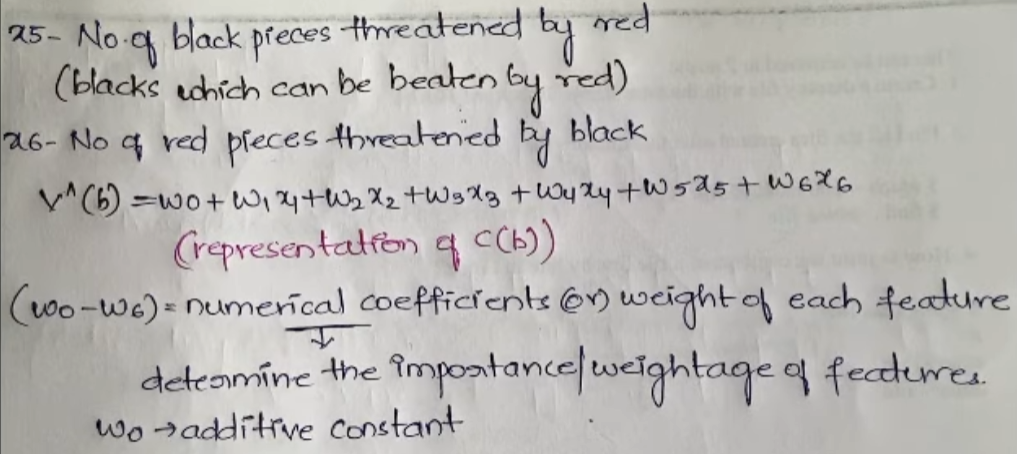 x5- No. of black pieces threatened by red
(blacks which can be beaten by red)
x6- No of red pieces threatened by black
V^(b) = w0 + w1 x1 + w2 x2 + w3 x3 + w4 x4 + w5 x5 + w6 x6
(representation of c(b))
(w0-w6) = numerical coefficients (or) weight of each feature
↓
determine the importance/weightage of features.
w0 → additive constant